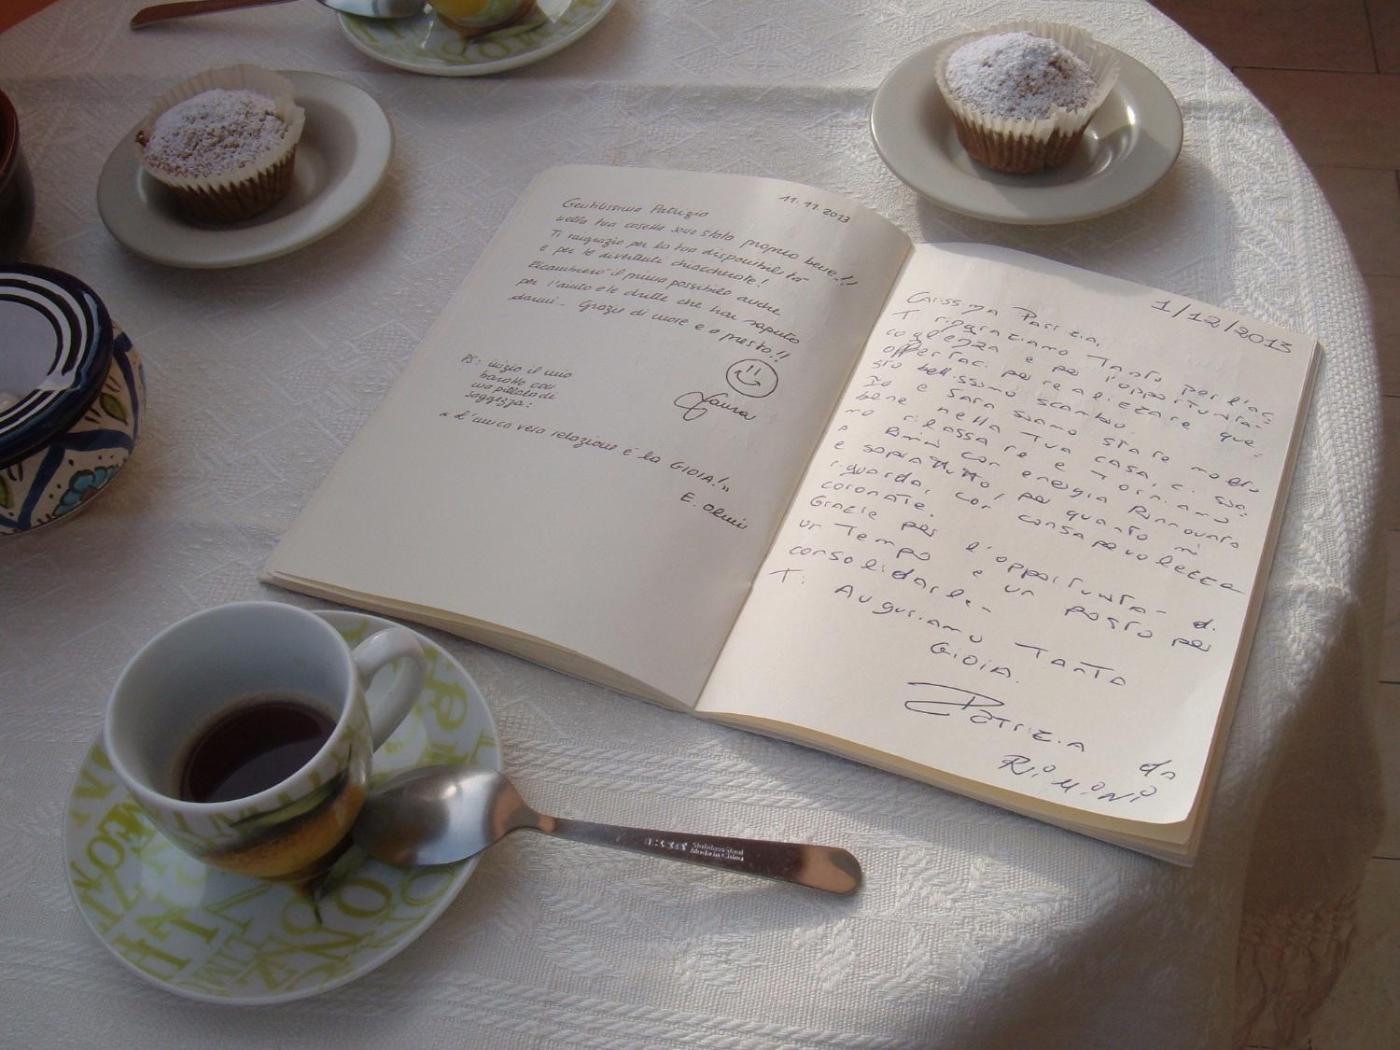 11.11.2013
Gentilissima Patrizia
nella tua casetta sono stata proprio bene!!!
Ti ringrazio per la tua disponibilità
e per le divertenti chiacchierate!
Ricambierò il prima possibile anche
per l'aiuto e le dritte che hai saputo
darmi.. Grazie di cuore e a presto!!
Laura
PS: inizio il mio
baratto con
una pillola di
saggezza:
"L'unica vera relazione è la GIOIA!"
E. Olmi
1/12/2013
Carissima Patrizia,
Ti ringraziamo Tanto per l'ac
coglienza e per l'opportunita-
offertaci per realizzare que
sto bellissimo scambio.
Io e Sara siamo state molto
bene nella Tua casa, ci sia-
mo rilassate e torniamo
a Rimini con energia Rinnovata
e soprattutto, per quanto mi
riguarda, con consapevolezze
coronate.
Grazie per l'opportunita- di
un Tempo e un posto per
consolidarle.
Ti Auguriamo Tanta
Gioia.
Patrizia da
RiMiNi
Stainless Steel
Made in China